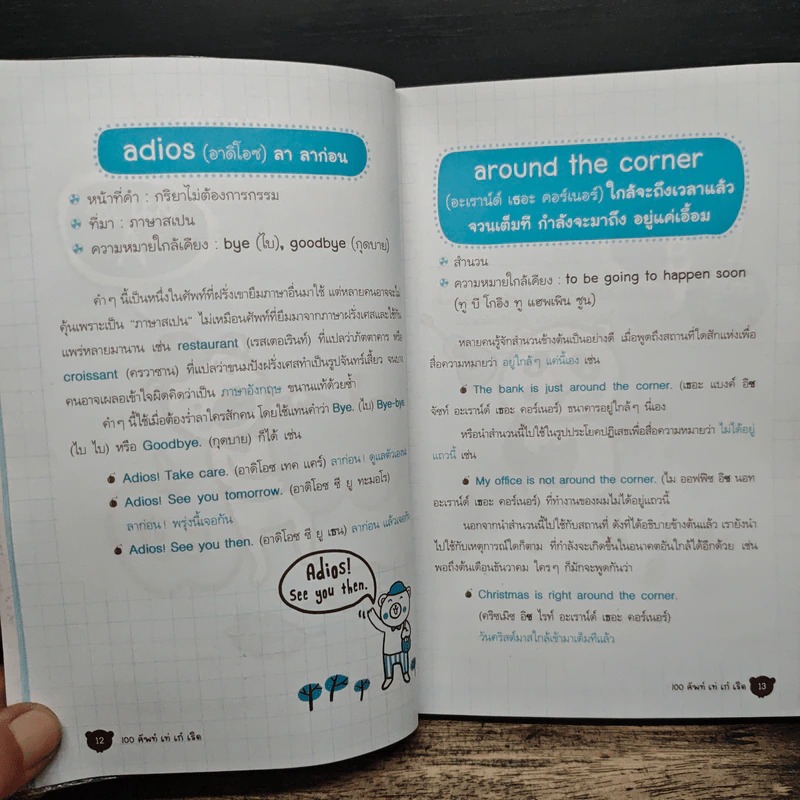 adios (อาดิโอซ) ลา ลาก่อน
หน้าที่คำ : กริยาไม่ต้องการกรรม
ที่มา : ภาษาสเปน
ความหมายใกล้เคียง : bye (ไบ), goodbye (กุดบาย)
คำๆ นี้เป็นหนึ่งในศัพท์ที่ฝรั่งเขายืมภาษาอื่นมาใช้ แต่หลายคนอาจจะไม่
คุ้นเพราะเป็น "ภาษาสเปน" ไม่เหมือนศัพท์ที่ยืมมาจากภาษาฝรั่งเศสและใช้กัน
แพร่หลายมานาน เช่น restaurant (เรสเตอเรินท์) ที่แปลว่าภัตตาคาร หรือ
croissant (ครวาซาน) ที่แปลว่าขนมปังฝรั่งเศสทำเป็นรูปจันทร์เสี้ยว จนบาง
คนอาจเผลอเข้าใจผิดคิดว่าเป็น ภาษาอังกฤษ ขนานแท้ด้วยซ้ำ
คำๆ นี้ใช้เมื่อต้องร่ำลาใครสักคน โดยใช้แทนคำว่า Bye. (ไบ) Bye-bye.
(ไบ ไบ) หรือ Goodbye. (กุดบาย) ก็ได้ เช่น
Adios! Take care. (อาดิโอซ เทค แคร์) ลาก่อน! ดูแลตัวเองนะ
Adios! See you tomorrow. (อาดิโอซ ซี ยู ทะมอโร)
ลาก่อน! พรุ่งนี้เจอกัน
Adios! See you then. (อาดิโอซ ซี ยู เธน) ลาก่อน แล้วเจอกัน
Adios!
See you then.
12 100 ศัพท์ เท่ เก๋ เริ่ด
around the corner
(อะเราน์ด์ เธอะ คอร์เนอร์) ใกล้จะถึงเวลาแล้ว
จวนเต็มที กำลังจะมาถึง อยู่แค่เอื้อม
สำนวน
ความหมายใกล้เคียง : to be going to happen soon
(ทู บี โกอิง ทู แฮพเพิน ซูน)
หลายคนรู้จักสำนวนข้างต้นเป็นอย่างดี เมื่อพูดถึงสถานที่ใดสักแห่งเพื่อ
สื่อความหมายว่า อยู่ใกล้ๆ แค่นี้เอง เช่น
The bank is just around the corner. (เธอะ แบงค์ อิซ
จัซท์ อะเราน์ด์ เธอะ คอร์เนอร์) ธนาคารอยู่ใกล้ๆ นี่เอง
หรือนำสำนวนนี้ไปใช้ในรูปประโยคปฏิเสธเพื่อสื่อความหมายว่า ไม่ได้อยู่
แถวนี้ เช่น
My office is not around the corner. (ไม ออฟฟิซ อิซ นอท
อะเราน์ด์ เธอะ คอร์เนอร์) ที่ทำงานของผมไม่ได้อยู่แถวนี้
นอกจากนำสำนวนนี้ไปใช้กับสถานที่ ดังที่ได้อธิบายข้างต้นแล้ว เรายังนำ
ไปใช้กับเหตุการณ์ใดก็ตาม ที่กำลังจะเกิดขึ้นในอนาคตอันใกล้ได้อีกด้วย เช่น
พอถึงต้นเดือนธันวาคม ใครๆ ก็มักจะพูดกันว่า
Christmas is right around the corner.
(คริซเมิซ อิซ ไรท์ อะเราน์ด์ เธอะ คอร์เนอร์)
วันคริสต์มาสใกล้เข้ามาเต็มทีแล้ว
100 ศัพท์ เท่ เก๋ เริ่ด 13